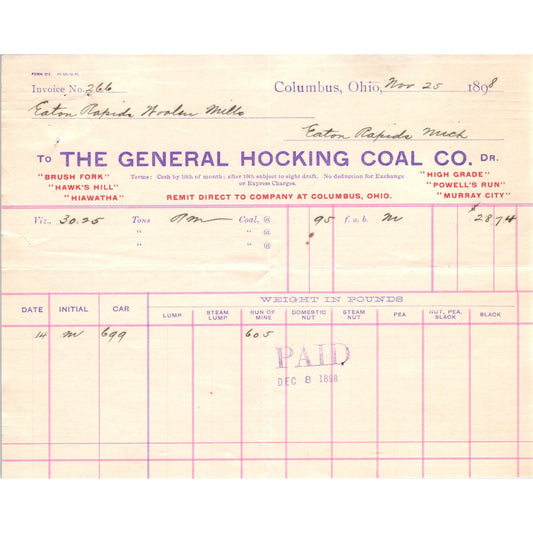 Invoice No. 266
Columbus, Ohio, Nov 25 1898
Eaton Rapids Woolen Mills
Eaton Rapids Mich
To THE GENERAL HOCKING COAL CO. DR.
"BRUSH FORK"
"HAWK'S HILL"
"HIAWATHA"
Terms: Cash by 10th of month; after 10th subject to sight draft. No deduction for Exchange
or Express Charges.
"HIGH GRADE"
"POWELL'S RUN"
"MURRAY CITY"
REMIT DIRECT TO COMPANY AT COLUMBUS, OHIO.
Viz. 30.25 Tons RM Coal, @ 95 f. o. b. M $28.74
" " @
" " @
WEIGHT IN POUNDS
DATE INITIAL CAR LUMP STEAM LUMP RUN OF MINE DOMESTIC NUT STEAM NUT PEA NUT, PEA, SLACK SLACK
14 M 699 605
PAID
DEC 8 1898